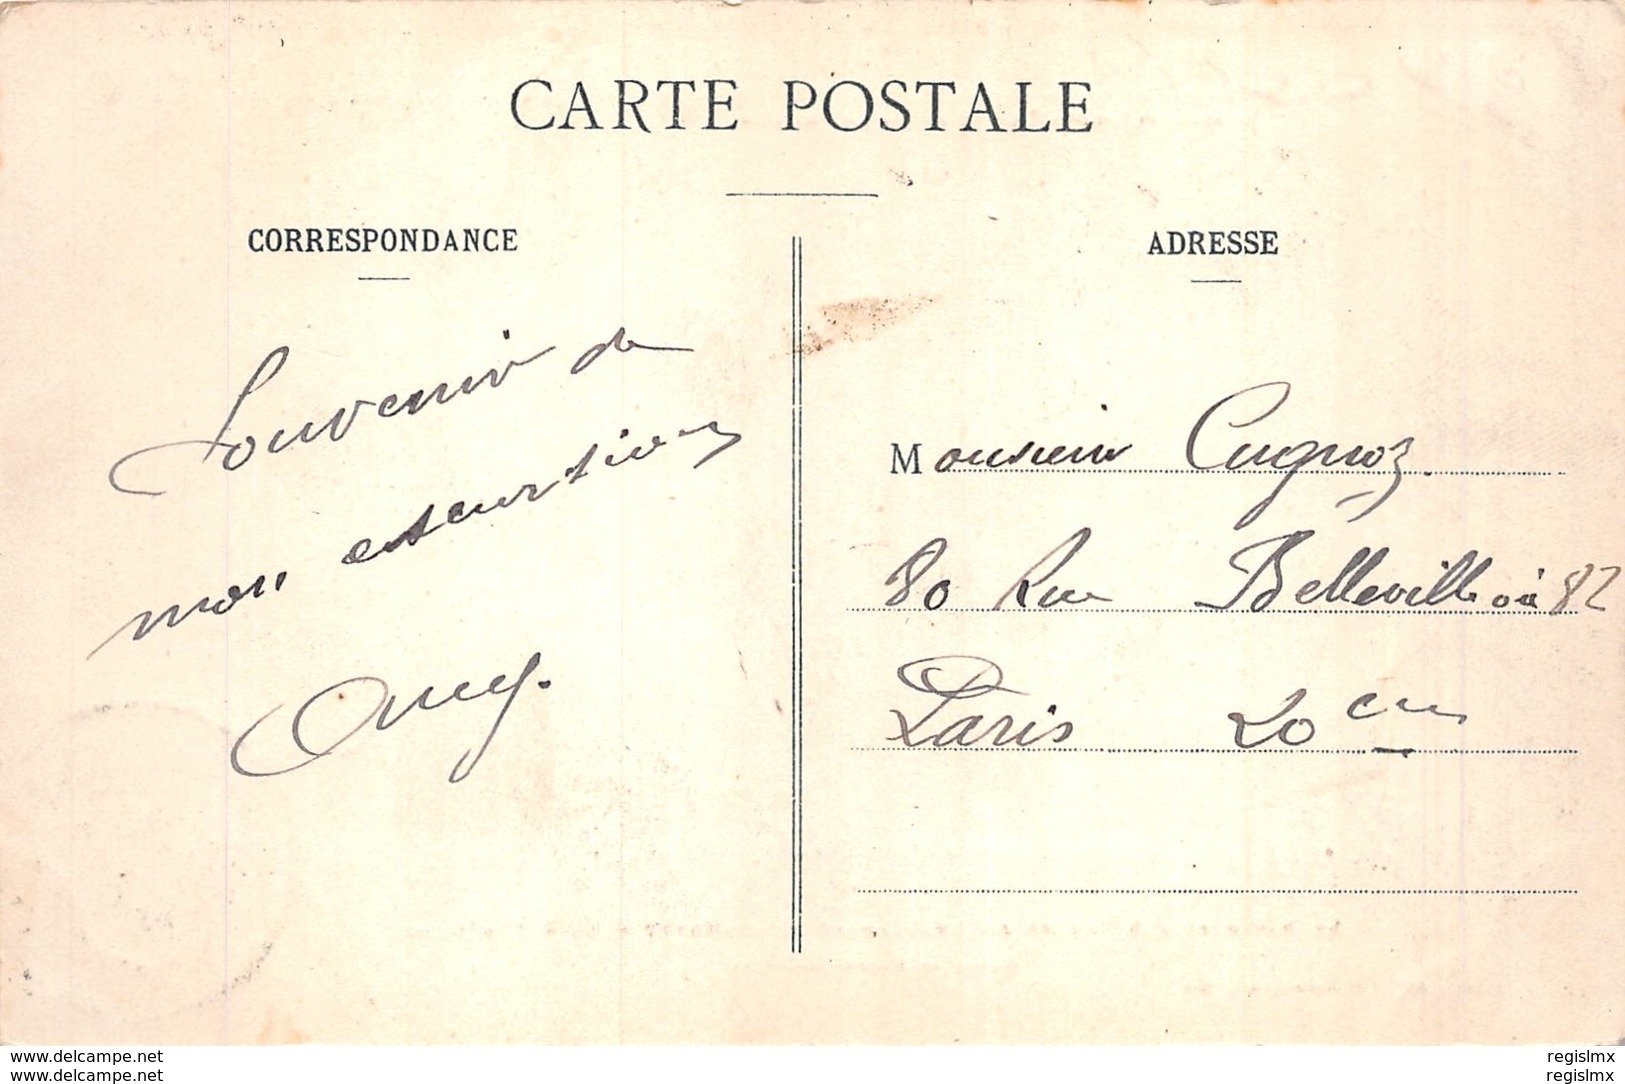 CARTE POSTALE
CORRESPONDANCE
Souvenir de
mon excurtion
ADRESSE
Monsieur Cugnoz.
80 Rue Belleville
Paris 20em
www.delcampe.net
regislmx
www.delcampe.net
regislmx